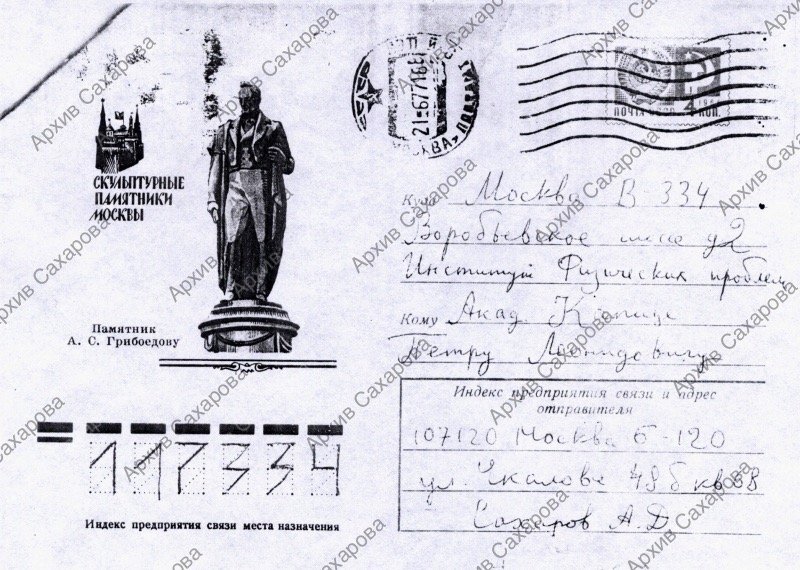 СКУЛЬПТУРНЫЕ
ПАМЯТНИКИ
МОСКВЫ
Памятник
А. С. Грибоедову
ПОЧТА СССР
4 КОП.
Куда Москва В 334
Воробьевское шоссе д2
Институт Физических проблем
Кому Акад. Капице
Петру Леонидовичу
Индекс предприятия связи и адрес
отправителя
107120 Москва Б-120
ул. Чкалова 48б кв 68
Сахаров А.Д
117334
Индекс предприятия связи места назначения
Архив Сахарова